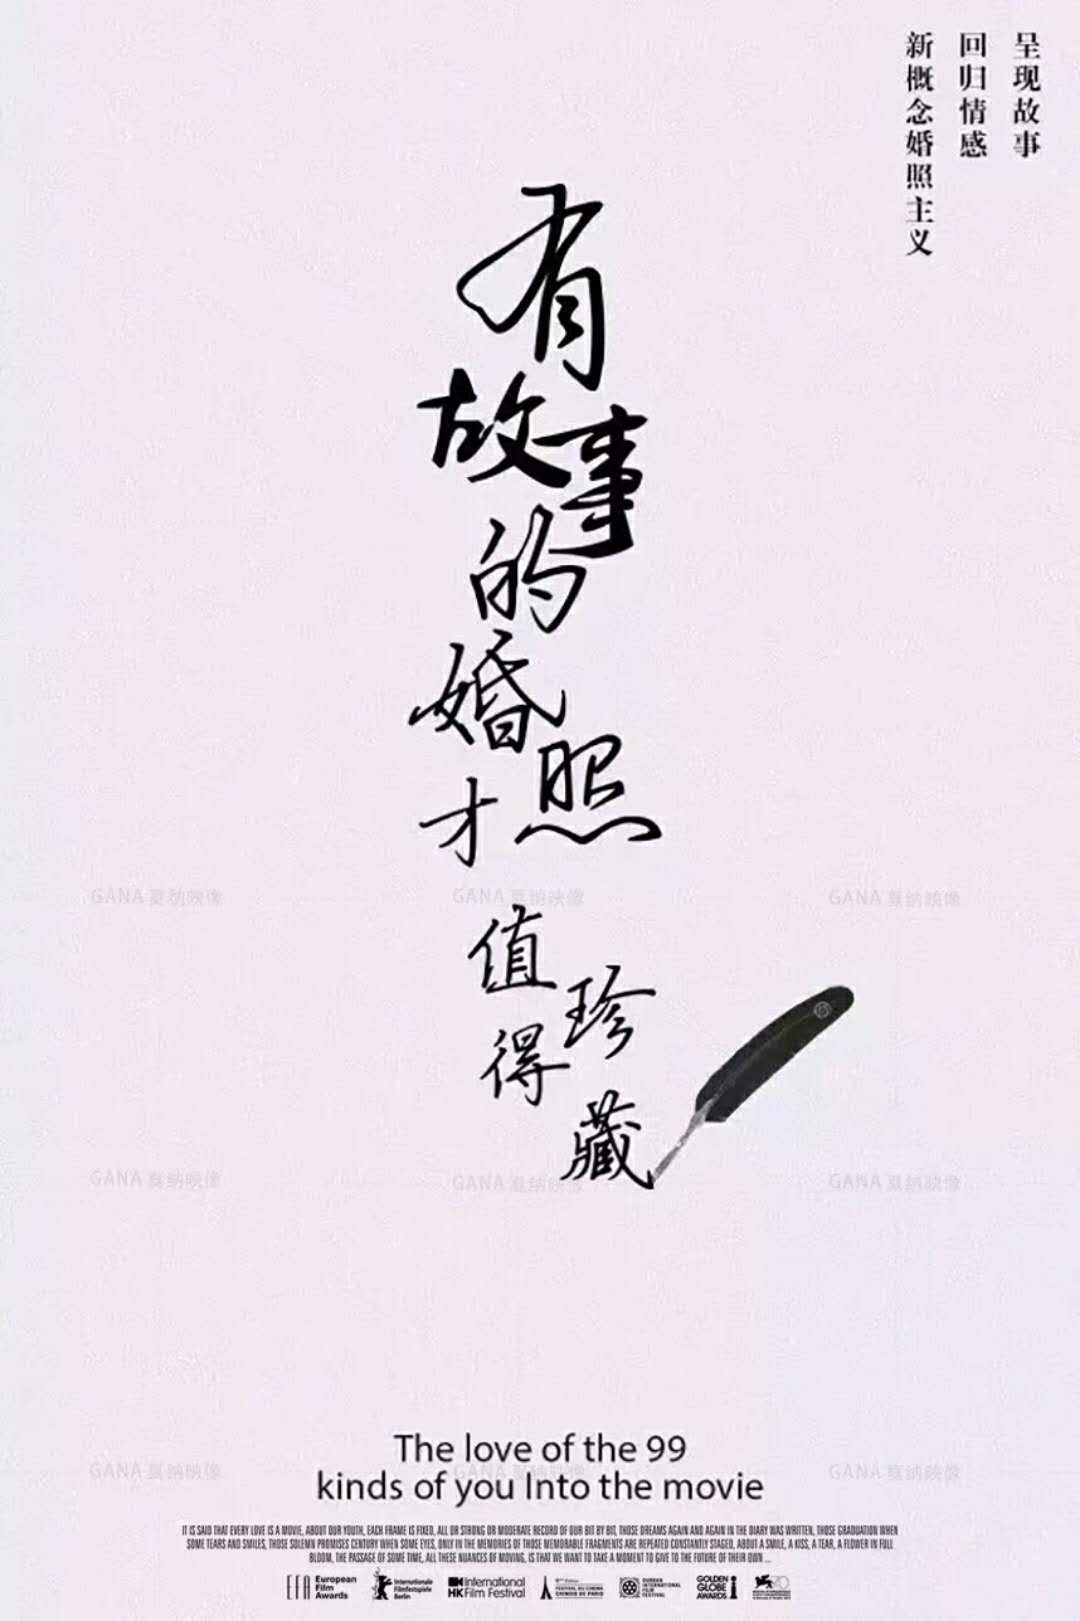 呈现故事
回归情感
新概念婚照主义
有
故事
的
婚照
才
值得
珍藏
GANA 夏纳映像
GANA 夏纳映像
GANA 夏纳映像
GANA 夏纳映像
GANA 夏纳映像
GANA 夏纳映像
The love of the 99
GANA 夏纳映像
GANA 夏纳映像
GANA 夏纳映像
kinds of you Into the movie
IT IS SAID THAT EVERY LOVE IS A MOVIE, ABOUT OUR YOUTH, EACH FRAME IS FIXED, ALL OR STRONG OR MODERATE RECORD OF OUR BIT BY BIT, THOSE DREAMS AGAIN AND AGAIN IN THE DIARY WAS WRITTEN, THOSE GRADUATION WHEN
SOME TEARS AND SMILES, THOSE SOLEMN PROMISES CENTURY WHEN SOME EYES, ONLY IN THE MEMORIES OF THOSE MEMORABLE FRAGMENTS ARE REPEATED CONSTANTLY STAGED, ABOUT A SMILE, A KISS, A TEAR, A FLOWER IN FULL
BLOOM, THE PASSAGE OF SOME TIME, ALL THESE NUANCES OF MOVING, IS THAT WE WANT TO TAKE A MOMENT TO GIVE TO THE FUTURE OF THEIR OWN ...
EFA European Film Awards
Internationale Filmfestspiele Berlin
International HK Film Festival
FESTIVAL DU CINEMA CHINOIS DE PARIS
DURBAN INTERNATIONAL FILM FESTIVAL
GOLDEN GLOBE AWARDS
70